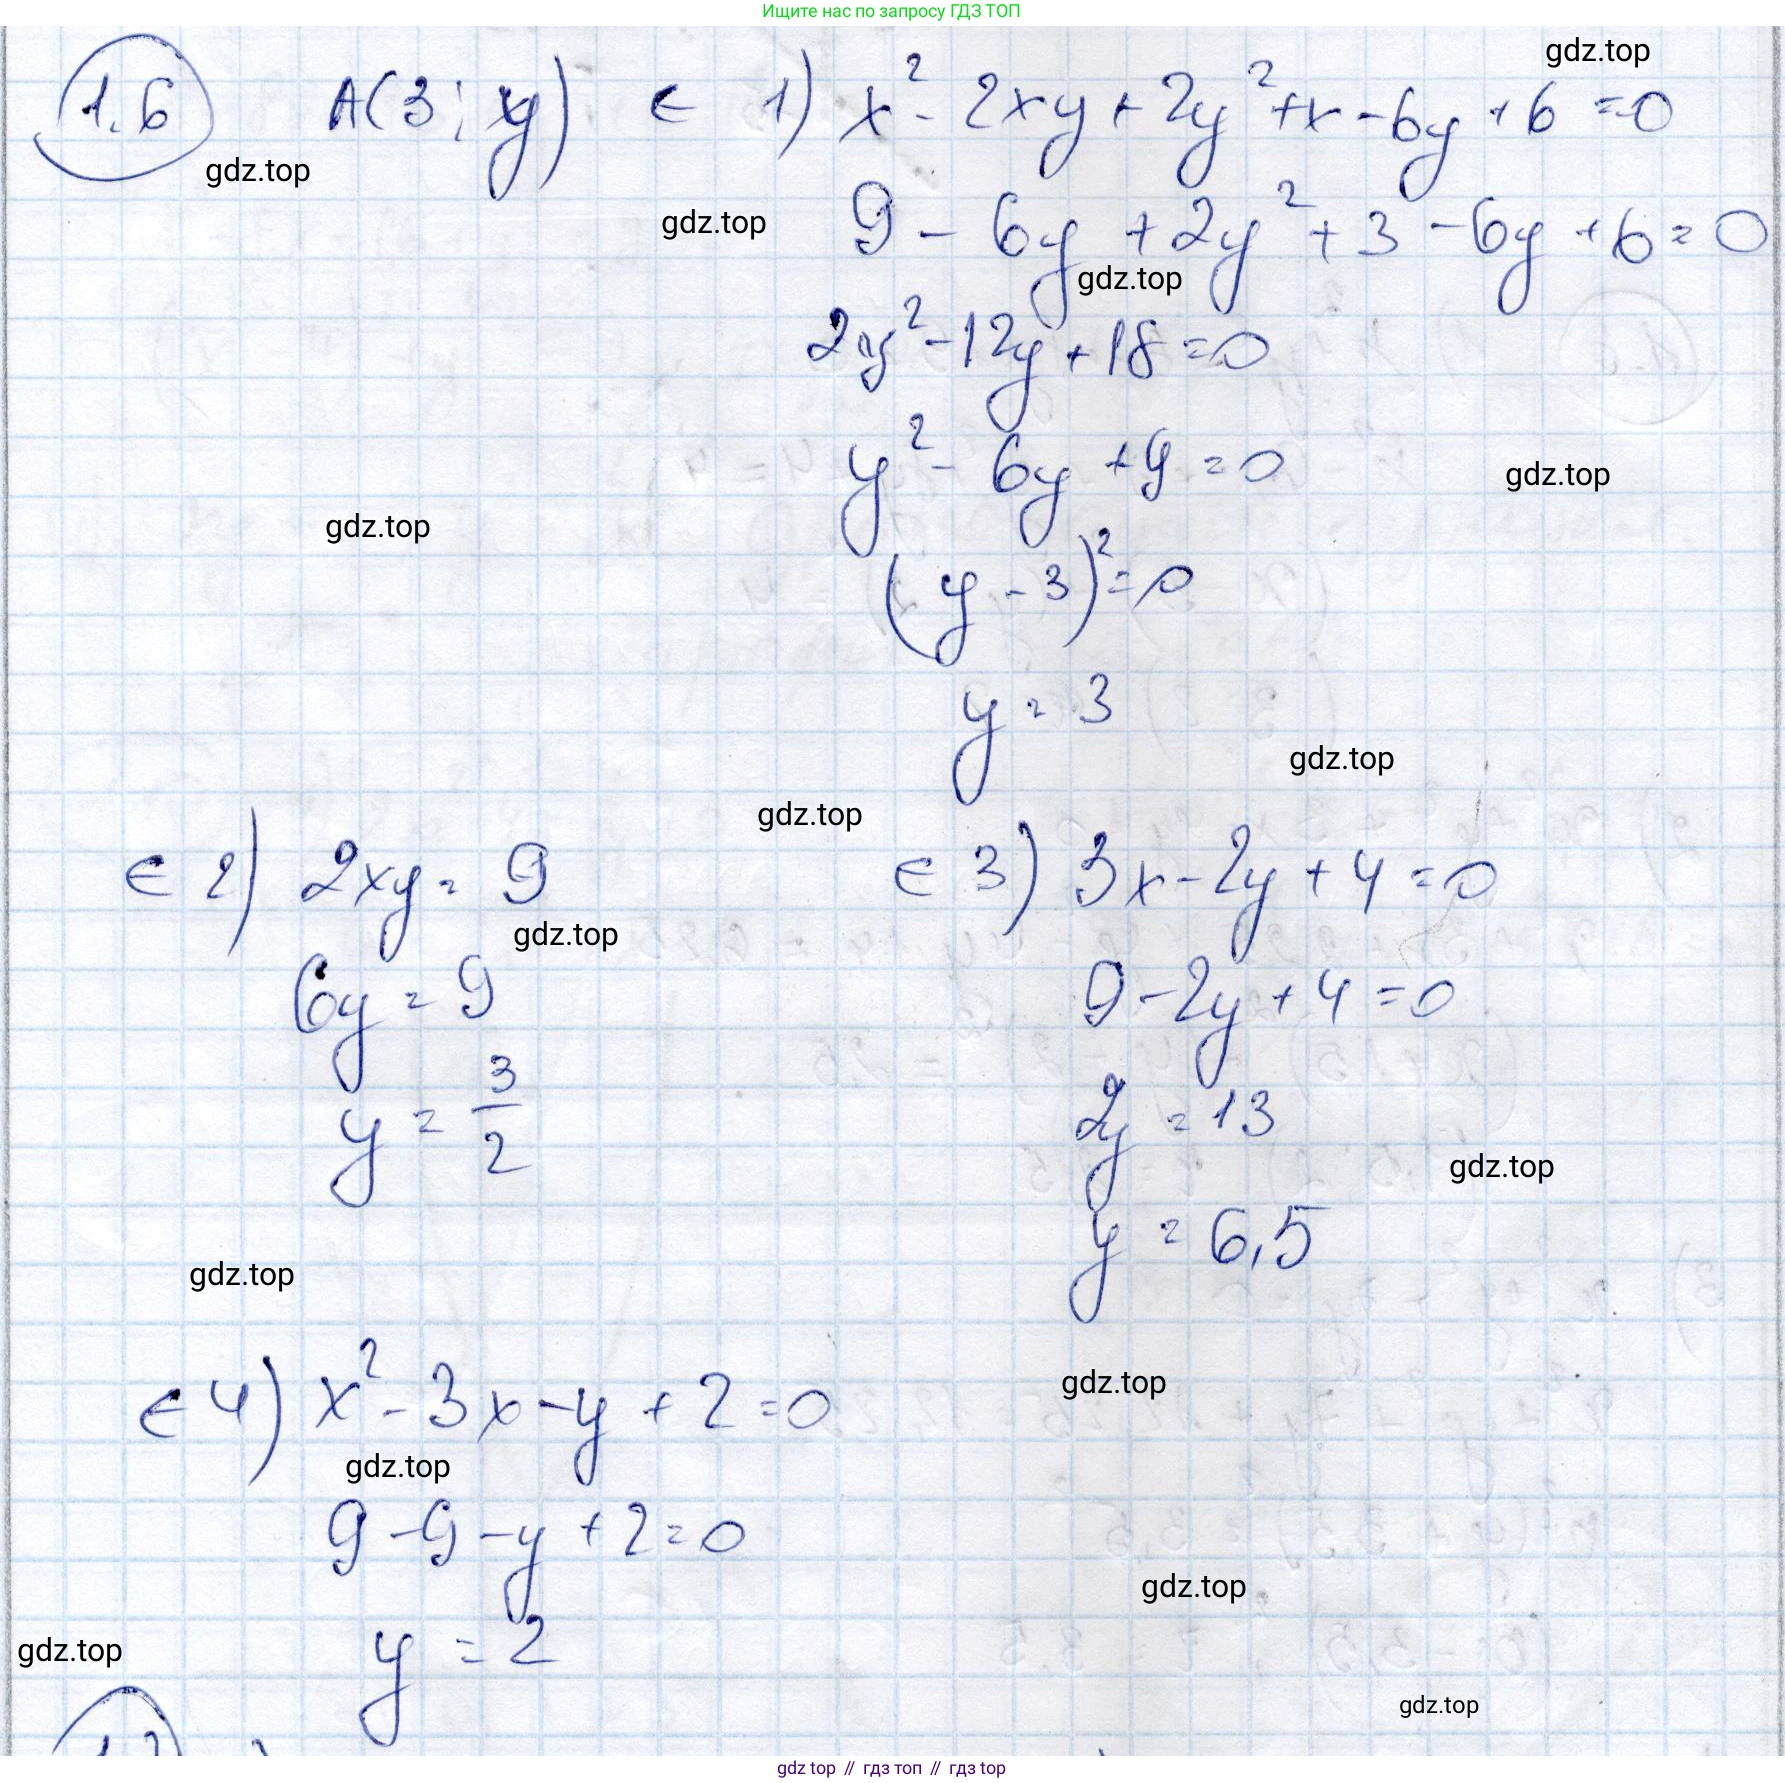 Ищите нас по запросу ГДЗ ТОП
gdz.top
1.6 A(3; y) ∈ 1) x² - 2xy + 2y² + x - 6y + 6 = 0
gdz.top
gdz.top
9 - 6y + 2y² + 3 - 6y + 6 = 0
gdz.top
2y² - 12y + 18 = 0
y² - 6y + 9 = 0
gdz.top
gdz.top
(y - 3)² = 0
y = 3
gdz.top
gdz.top
∈ 2) 2xy = 9
gdz.top
6y = 9
y = 3/2
∈ 3) 3x - 2y + 4 = 0
9 - 2y + 4 = 0
2y = 13
gdz.top
y = 6,5
gdz.top
gdz.top
∈ 4) x² - 3x - y + 2 = 0
gdz.top
9 - 9 - y + 2 = 0
gdz.top
y = 2
gdz.top
gdz.top
gdz top // гдз топ // гдз top